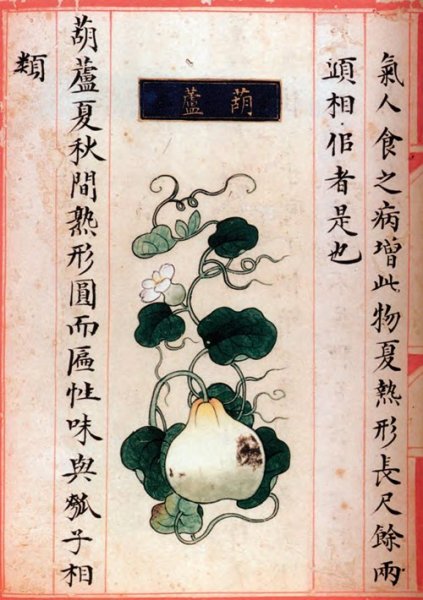 氣人食之病增此物夏熱形長尺餘兩
頭相佀者是也
葫蘆
葫蘆夏秋間熟形圓而匾性味與瓠子相
類